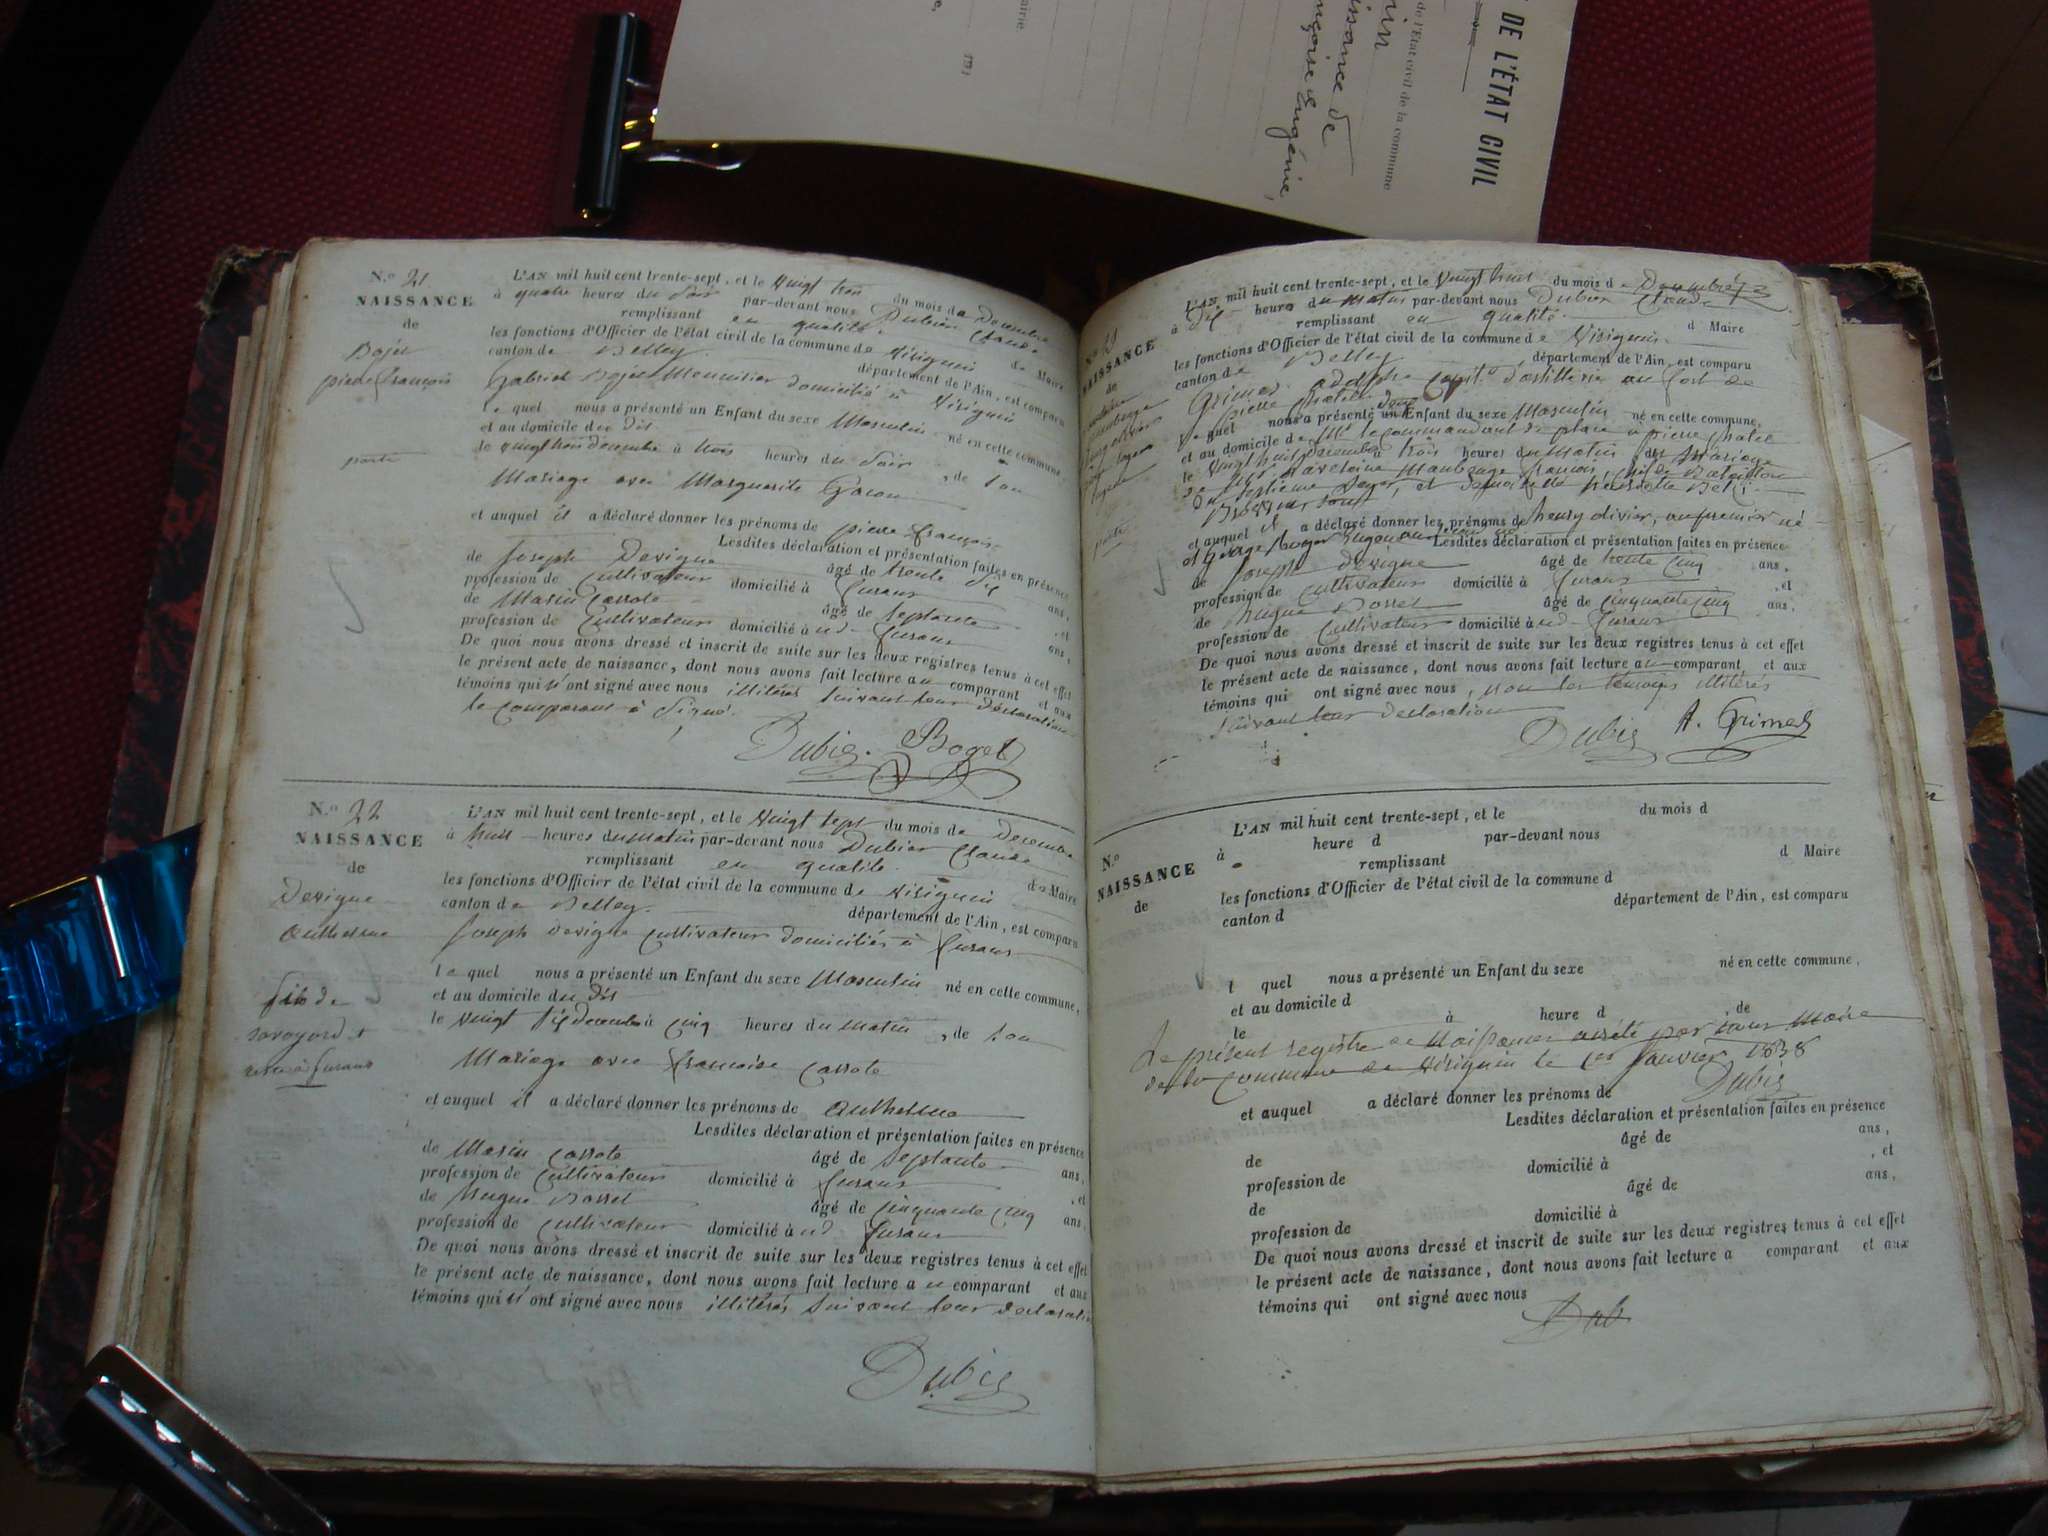 DE L'ÉTAT CIVIL
de l'État civil de la commune
issance de
nçoise Eugénie,
191
N.º 21
NAISSANCE
de
Bojet
pierre françois
L'AN mil huit cent trente-sept, et le vingt trois du mois de Decembre
à quatre heures du soir par-devant nous Dubier Claude
remplissant en qualité de Maire
les fonctions d'Officier de l'état civil de la commune de Virignin
canton de Belley département de l'Ain, est comparu
Gabriel Bojet Meunier domicilié à Virignin
le quel nous a présenté un Enfant du sexe Masculin né en cette commune,
et au domicile de
le vingt trois decembre à trois heures du soir, de son
Mariage avec Marguerite
et auquel il a déclaré donner les prénoms de pierre françois
Lesdites déclaration et présentation faites en présence
de Joseph Devigne âgé de trente six ans,
profession de Cultivateur domicilié à furans, et
de Marin Carrote âgé de septante ans,
profession de Cultivateur domicilié à ud. furans
De quoi nous avons dressé et inscrit de suite sur les deux registres tenus à cet effet
le présent acte de naissance, dont nous avons fait lecture au comparant et aux
témoins qui n'ont signé avec nous illitérés suivant leur déclaration
le comparant à signé
Dubier Boget
N.º 22
NAISSANCE
de
Devigne
Anthelme
fils de
savoyard
furans
L'AN mil huit cent trente-sept, et le vingt sept du mois de Decembre
à huit heures du matin par-devant nous Dubier Claude
remplissant en qualite de Maire
les fonctions d'Officier de l'état civil de la commune de Virignin
canton de Belley département de l'Ain, est comparu
Joseph Devigne Cultivateur domicilié à furans
le quel nous a présenté un Enfant du sexe Masculin né en cette commune,
et au domicile du dit
le vingt six decembre à cinq heures du matin, de son
Mariage avec françoise Carrote
et auquel il a déclaré donner les prénoms de Anthelme
Lesdites déclaration et présentation faites en présence
de Marin Carrote âgé de septante ans,
profession de Cultivateur domicilié à furans, et
de hugue Borrel âgé de cinquante cinq ans,
profession de Cultivateur domicilié à ud furans
De quoi nous avons dressé et inscrit de suite sur les deux registres tenus à cet effet
le présent acte de naissance, dont nous avons fait lecture au comparant et aux
témoins qui n'ont signé avec nous illitérés suivant leur declaration
Dubier
NAISSANCE
de
L'AN mil huit cent trente-sept, et le vingt huit du mois de Decembre
à dix heures du matin par-devant nous Dubier Claude
remplissant en qualité d Maire
les fonctions d'Officier de l'état civil de la commune de Virignin
canton de Belley, département de l'Ain, est comparu
Grimes adolphe Capit.e d'artillerie au fort de
pierre chatel
le quel nous a présenté deux Enfant du sexe Masculin né en cette commune,
et au domicile de Mr le commandant de place à pierre chatel
le vingt huit decembre à trois heures du Matin du Mariage
de Mr Maubeuge francois, chef de Bataillon
et demoiselle henriette
et auquel il a déclaré donner les prénoms de henry olivier, au premier né
et George Roger Eugene au second né Lesdites déclaration et présentation faites en présence
de Joseph Devigne âgé de trente cinq ans,
profession de cultivateur domicilié à furans, et
de hugue Borrel âgé de cinquante cinq ans,
profession de Cultivateur domicilié à ud. furans
De quoi nous avons dressé et inscrit de suite sur les deux registres tenus à cet effet
le présent acte de naissance, dont nous avons fait lecture au comparant et aux
témoins qui ont signé avec nous, non les témoins illitérés
suivant leur declaration
Dubier A. Grimes
N.º
NAISSANCE
de
L'AN mil huit cent trente-sept, et le du mois d
à heure d par-devant nous
remplissant d Maire
les fonctions d'Officier de l'état civil de la commune d
canton d département de l'Ain, est comparu
l quel nous a présenté un Enfant du sexe né en cette commune,
et au domicile d
le à heure d, de
Le présent registre de Naissances arrêté par nous Maire
de la Commune de Virignin le 1er Janvier 1838
Dubier
et auquel a déclaré donner les prénoms de
Lesdites déclaration et présentation faites en présence
de âgé de ans,
profession de domicilié à, et
de âgé de ans,
profession de domicilié à
De quoi nous avons dressé et inscrit de suite sur les deux registres tenus à cet effet
le présent acte de naissance, dont nous avons fait lecture a comparant et aux
témoins qui ont signé avec nous
Dub